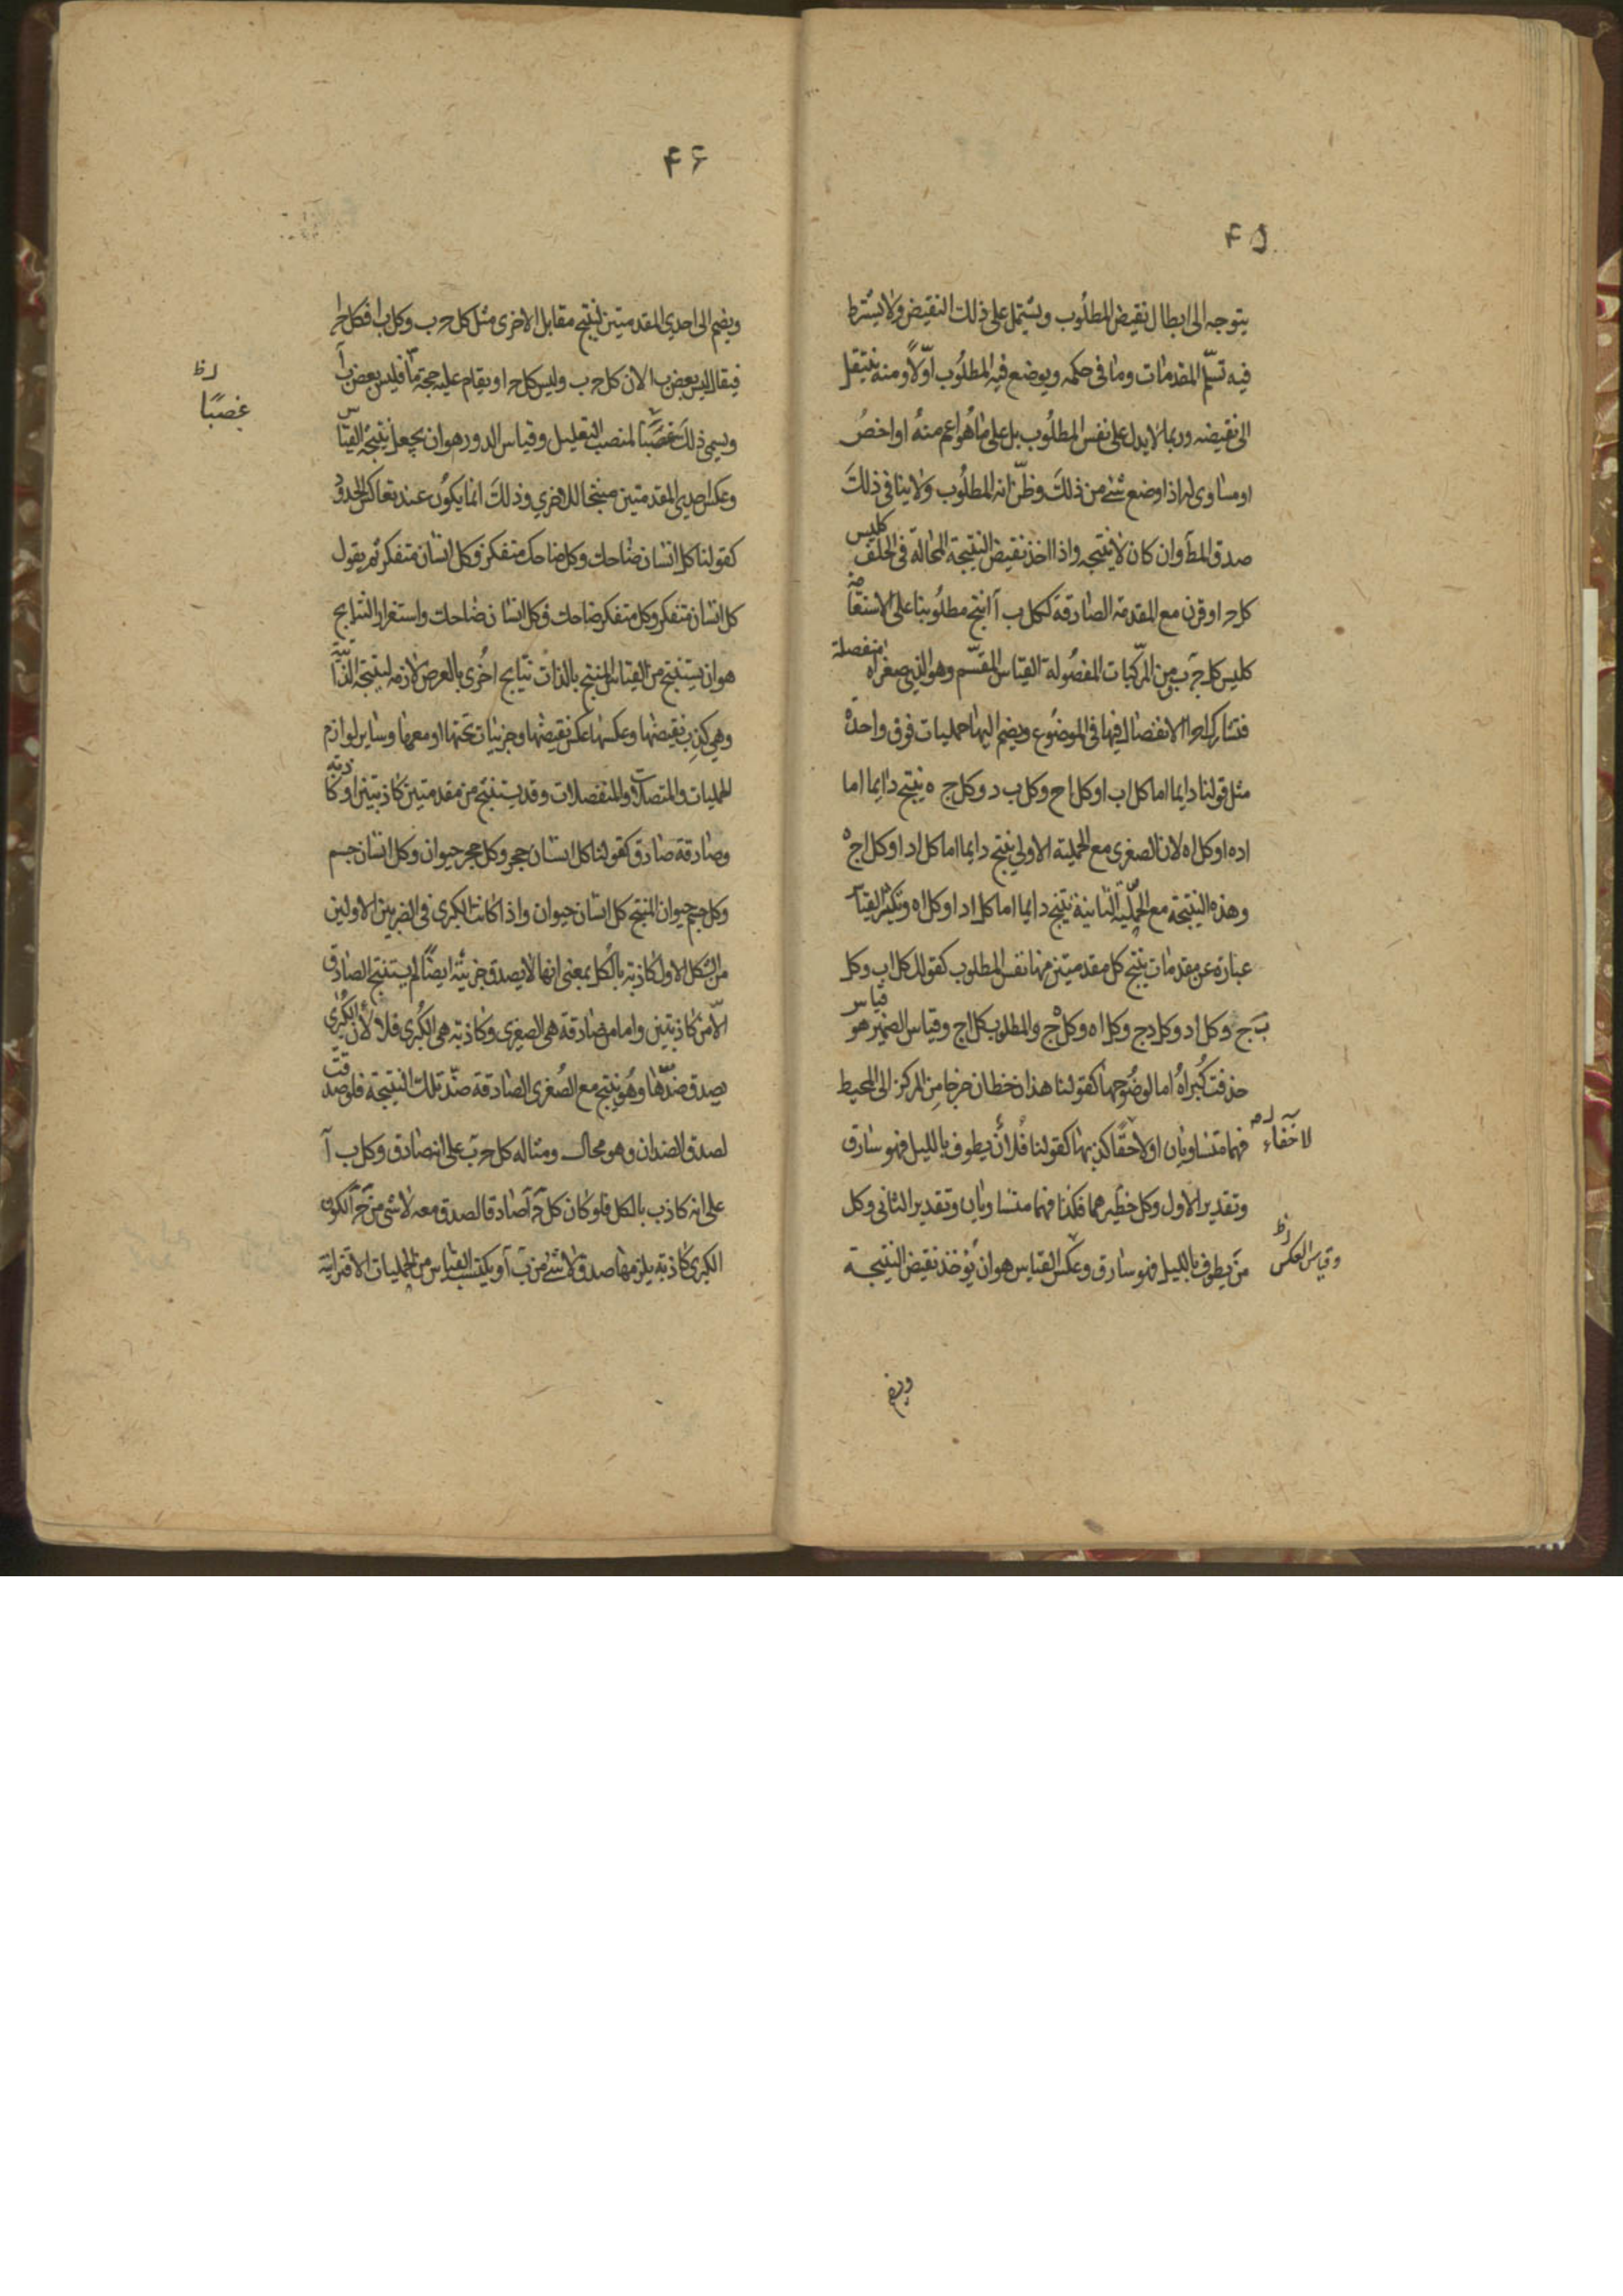 ۴۵
يتوجه الى ابطال نقيض المطلُوب ويشتمل على ذلك النقيض ولا يشترط
فيه تسلّم المقدمات وما فى حكمه ويوضع فيه المطلُوب اوّلاً ومنه ينتقل
الى نقيضه وربما لا يدل على نفس المطلُوب بل على ما هُو اعم منهُ او اخصُ
او مساوى له اذا وضع شئ من ذلكَ وظنّ انه المطلُوب ولا ينافى ذلكَ
صدق المط وان كان لا ينتجه واذا اخذ نقيض النتيجة المحالة فى الخلف كليس
كل ج ا وقرن مع المقدمة الصادقة ككل ب آ انتج مطلُوبنا على الاستقامة
كليس كل ج ب ومن المركبات المفصُولة القياس المقسّم وهو الذى صغراه منفصلة
فتشارك اجزاء الانفصال فيها فى الموضُوع ويضم اليها حمليات فوق واحدة
مثل قولنا دايما اما كل ا ب او كل ا ح وكل ب د وكل ج ه ينتج دايما اما
ا د ه او كل ا ه لان الصغرى مع الحملية الاولى ينتج دايما اما كل ا د او كل ا ج
وهذه النتيجة مع الحملية الثانية ينتج دايما اما كل ا د او كل ا ه وتكثير القياس
عبارة عن مقدمات ينتج كل مقدمتين منها نفس المطلوب كقولك كل ا ب وكل
ب ج وكل ا د وكل د ج وكل ا ه وكل ه ج والمطلوب كل ا ج وقياس الضمير هو قياس
حذفت كُبراهُ اما لوضُوحها كقولنا هذان خطان خرجا من المركز الى المحيط
فهما متساويان او لاخفاء كذبها كقولنا فُلان يطوف بالليل فهو سارق
لاخفاء
وتقدير الاول وكل خطين هما فكذا فهما متساويان وتقدير الثانى وكل
من يطوف بالليل فهو سارق وعكس القياس هو ان يُؤخذ نقيض النتيجة
وقياس العكس
ويضم
۴۶
ويضم الى احدى المقدمتين لينتج مقابل الاخرى مثل كل ج ب وكل ب ا فكل ج ا
فيقال ليس بعض ب ا لان كل ج ب وليس كل ج ا ويقام عليه حجة مّا فليس بعض ب آ
ويسمى ذلكَ غصبًا لمنصب التعليل وقياس الدور هو ان يجعل نتيجة القياس
غصبًا
وعكس احدى المقدمتين منتجا للاخرى وذلكَ انما يكوُن عند تعاكس الحدود
كقولنا كل انسان ضاحك وكل ضاحك متفكر فكل انسان متفكر ثم يقول
كل انسان متفكر وكل متفكر ضاحك فكل انسان ضاحك واستقرار النتايج
هو ان يستنتج من القياس المنتج بالذات نتايج اخُرى بالعرض لازمه لنتيجته الذاتية
وهى كذب نقيضها وعكسها وعكس نقيضها وجزئيات تحتها او معها وساير لوازم
الحمليات والمتصلات والمنفصلات وقد يستنتج من مقدمتين كاذبتين او كاذبة
وصادقة صادق كقولنا كل انسان حجر وكل حجر حيوان وكل انسان جسم
وكل جسم حيوان المنتج كل انسان حيوان واذا كانت الكبرى فى الضربين الاولين
من الشكل الاول كاذبة بالكل بمعنى انها لا يصدق جزئية ايضًا لم يستنتج الصادق
الاّ من كاذبتين واما من صادقة هى الصغرى وكاذبة هى الكُبرى فلا لأن الكُبرى
يصدق ضدّها وهُو ينتج مع الصُغرى الصادقة ضدّ تلك النتيجة فلو صدقت
لصدق الضدان وهو محال ومثاله كل ج ب على انه صادق وكل ب آ
على انه كاذب بالكل فلو كان كل ج آ صادقا لصدق معه لا شئ من ج آ لكون
الكبرى كاذبة يلزمها صدق لا شئ من ب آ ويكتسب القياس من الحمليات الاقترانية